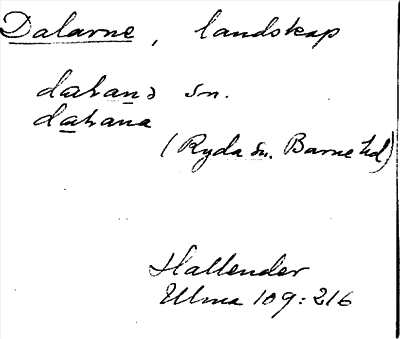 Dalarne, landskap
daƚanɔ sn.
daƚana
(Ryda sn. Barne hd)
Hallender
Ulma 109:216